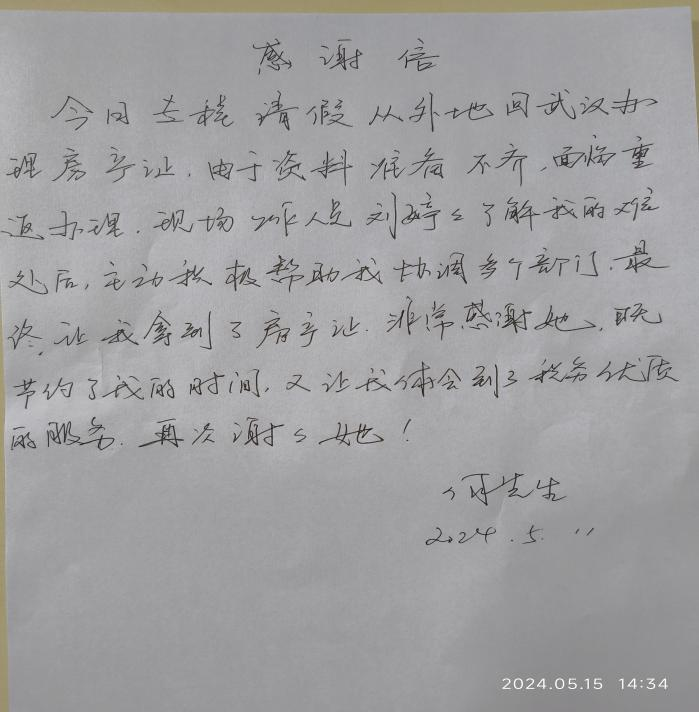 感谢信
今日专程请假从外地回武汉办
理房产证,由于资料准备不齐,面临重
返办理.现场工作人员刘婷々了解我的难
处后,主动积极帮助我协调多个部门.最
终,让我拿到了房产证.非常感谢她,既
节约了我的时间,又让我体会到了税务优质
的服务.再次谢々她!
何先生
2024.5.11
2024.05.15 14:34